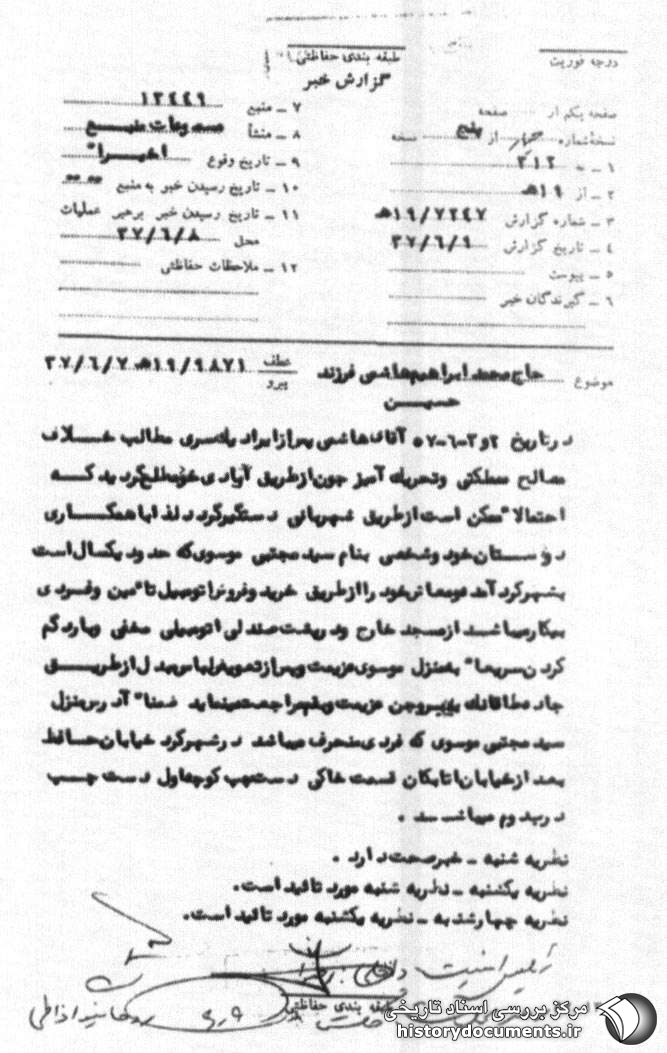 درجه فوریت
طبقه بندی حفاظتی
گزارش خبر
صفحه یکم از صفحه
نسخهٔ شماره چهار از پنج نسخه
۱ ــ به ۳۱۲
۲ ــ از ۱۹ﻫ
۳ ــ شماره گزارش ۱۹/۷۲۴۷ﻫ
۴ ــ تاریخ گزارش ۳۷/۶/۹
۵ ــ پیوست
۶ ــ گیرندگان خبر
۷ ــ منبع ۱۳۴۴۹
۸ ــ منشأ مسموعات منبع
۹ ــ تاریخ وقوع اخیراً
۱۰ ــ تاریخ رسیدن خبر به منبع
۱۱ ــ تاریخ رسیدن خبر برهبر عملیات
محل ۳۷/۶/۸
۱۲ ــ ملاحظات حفاظتی
موضوع حاج محمد ابراهیم هاشمی فرزند
حسین
عطف ۱۹/۹۸۷۱ﻫ ۳۷/۶/۷
پیرو
درتاریخ ۲و۳-۶-۵۷ آقای هاشمی پس از ایراد یکسری مطالب خلاف
مصالح مملکتی وتحریک آمیز چون از طریق ایادی خود مطلع گردید که
احتمالا" ممکن است از طریق شهربانی دستگیر گردد لذا با همکاری
دوستان خود وشخصی بنام سید مجتبی موسوی که حدود یکسال است
بشهرکرد آمده ومعاش خود را از طریق خرید وفروش اتومبیل تامین وفردی
بیکار میباشد از مسجد خارج ودر پشت صندلی اتومبیلی مخفی وبا رد گم
کردن سریعا" بمنزل موسوی عزیمت وپس از تعویض لباس مبدل از طریق
جاده طاقانک به بروجن عزیمت وبقم مراجعت مینماید ضمنا" آدرس منزل
سید مجتبی موسوی که فردی منحرف میباشد درشهرکرد خیابان حافظ
بعد از خیابان اتابکان قسمت خاکی دست چپ کوچه اول دست چپ
درب دوم میباشد .
نظریه شنبه ــ خبر صحت دارد .
نظریه یکشنبه ــ نظریه شنبه مورد تائید است.
نظریه چهارشنبه ــ نظریه یکشنبه مورد تائید است.
طبقه بندی حفاظتی
مرکز بررسی اسناد تاریخی
historydocuments.ir